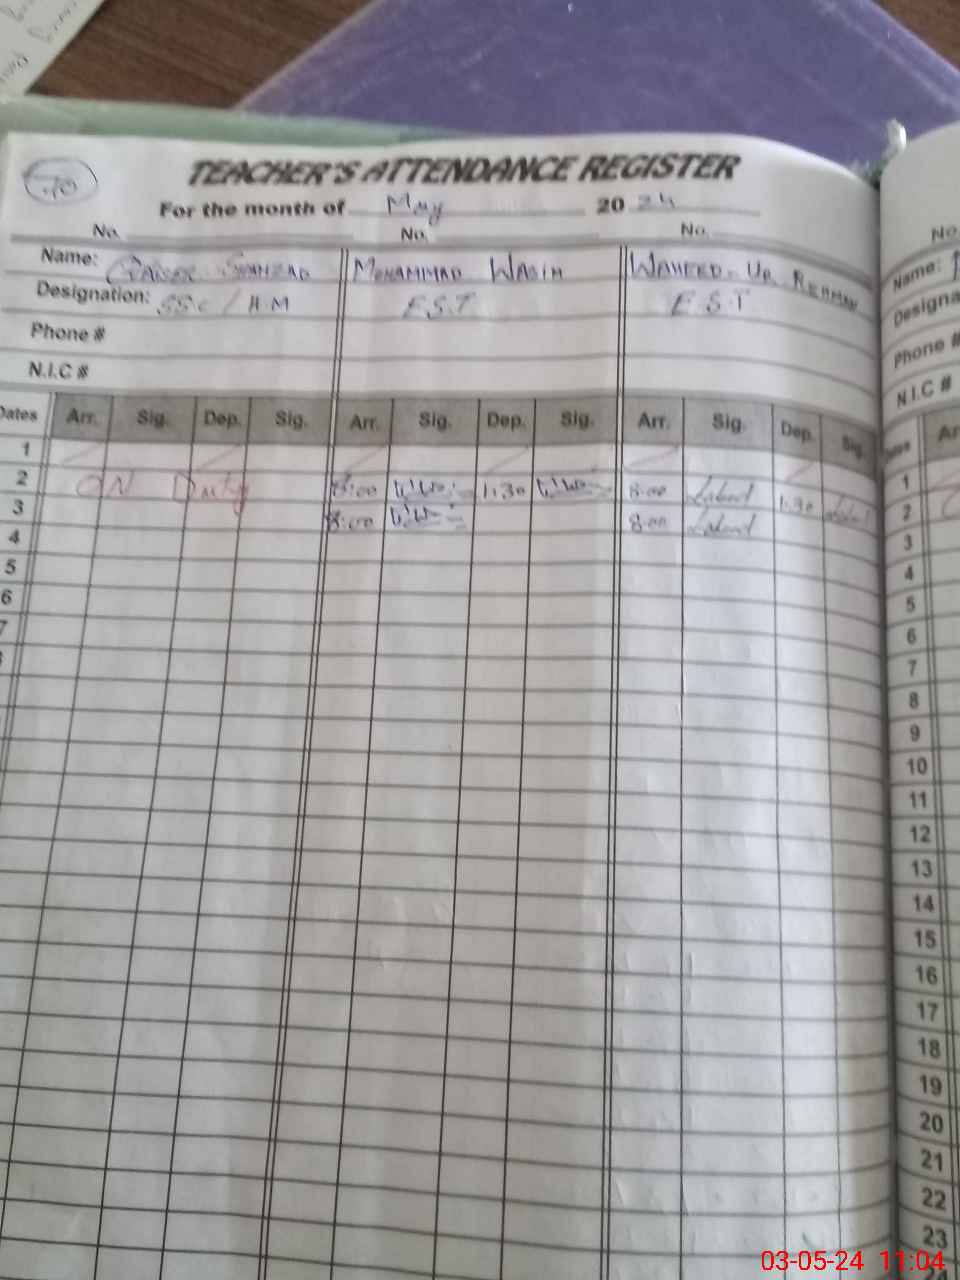 TEACHER'S ATTENDANCE REGISTER
For the month of May 20 24
No. No. No. No.
Name: Shahzad Mohammad Wasim Waheed-Ur Rehman Name:
Designation: SSC/H.M E.S.T E.S.T Designa
Phone # Phone #
N.I.C # N.I.C #
Dates Arr. Sig. Dep. Sig. Arr. Sig. Dep. Sig. Arr. Sig. Dep. Sig. Dates Ar
1 1
2 ON Duty 8:00 1:30 8:00 1:30 2
3 8:00 8:00 3
4 4
5 5
6 6
7 7
8
9
10
11
12
13
14
15
16
17
18
19
20
21
22
23
24
03-05-24 11:04